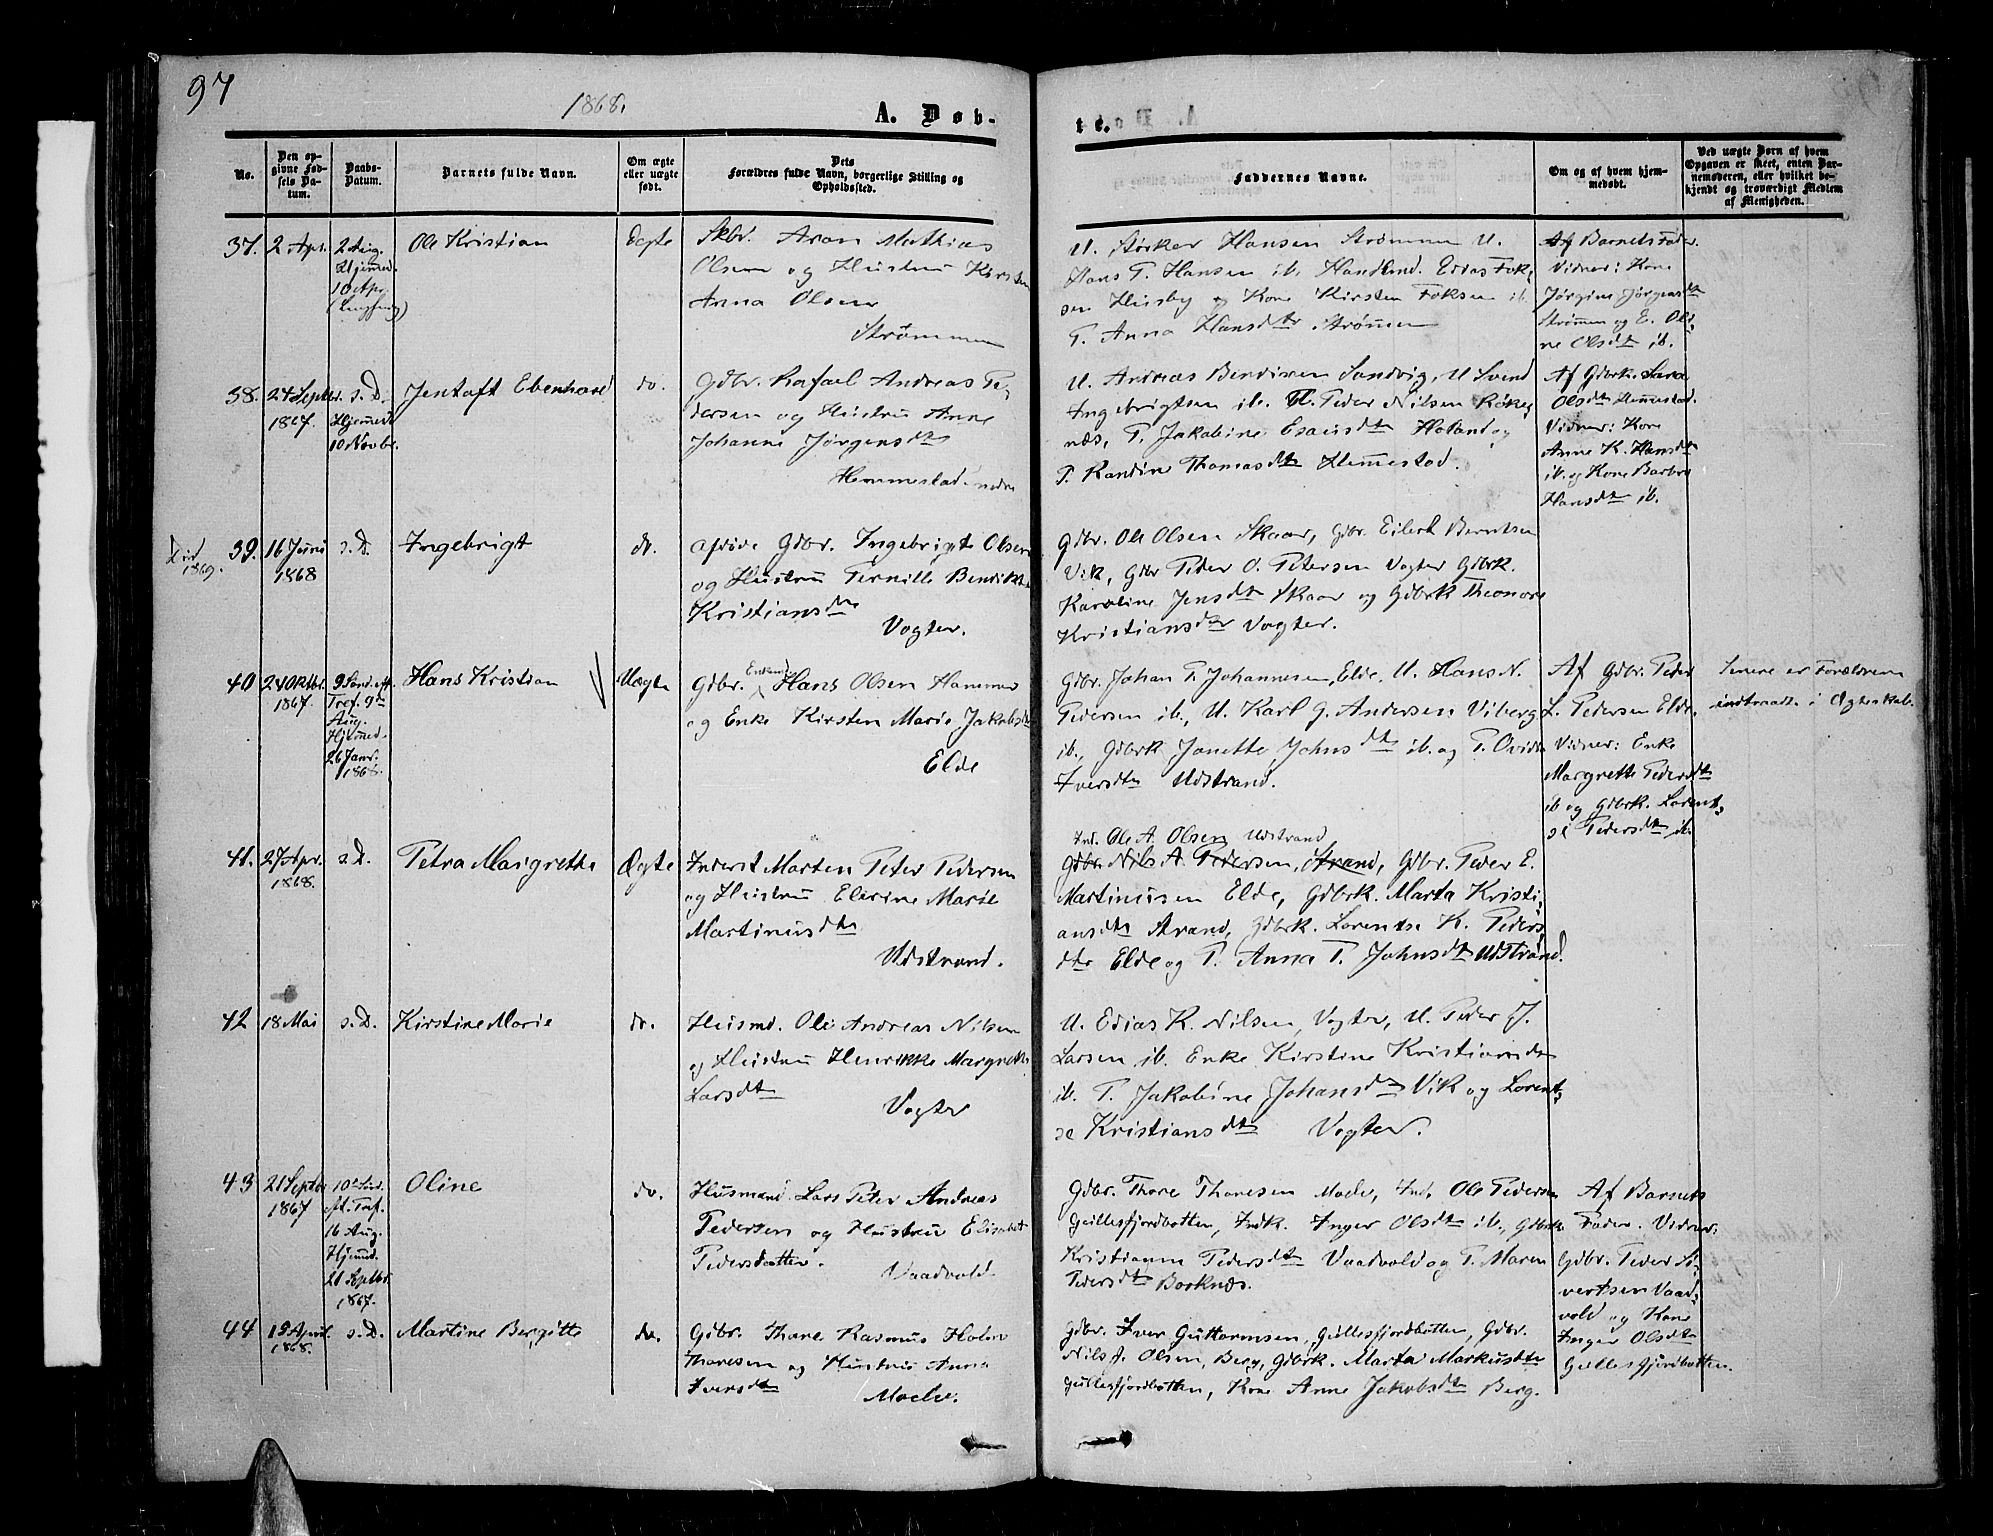 97
1868.
A. Døb-
te.
No.
Den opgivne Fødsels Datum.
Daabs-Datum.
Barnets fulde Navn.
Om ægte eller uægte født.
Dets Forældres fulde Navn, borgerlige Stilling og Opholdssted.
Faddernes Navne.
Om og af hvem hjemmedøbt.
Ved uægte Børn af hvem Opgaven er skeet, enten Barnemoderen, eller hvilket bekjendt og troværdigt Medlem af Menigheden.
37. 2 Apr.
2 Aug.
Hjemmed.
10 Apr.
Ole Kristian
Ægte
Skbr. Aron Mathias
Olsen og Hustru Kirsten
Anna Olsen
Strømmen
U. Størker Hansen Strømmen U.
Hans P. Hansen ib. Handlmd. Edias Fok-
sen Husby og Kone Kirsten Foksen ib.
P. Anna Hansdtr Strømmen
Af Barnets Fader.
Vidner: Kone
Jørgine Jørgensdtr
Strømmen og E. Oli-
ne Olsdtr ib.
38. 24 Septbr.
1867.
s. D.
Hjemmed
10 Novbr.
Jentoft Ebenhard
do.
Gdbr. Rafael Andreas Pe-
dersen og Hustru Anne
Johanne Jørgensdtr
Hemmestad nedre
U. Andreas Bendixen Sandvig, U Svend
Ingebrigtsen ib. U. Peder Nilsen Røke-
næs, P. Jakobine Esaiasdtr Holand og
P. Randine Thomasdtr Hemmestad.
Af Gdbrk. Sara
Olsdtr Hemmestad.
Vidner: Kone
Anne K. Hansdtr
ib. og Kone Barbro
Hansdtr ib.
Død
1869.
39. 16 Juni
1868
s. D.
Ingebrigt
do.
afdøde Gdbr. Ingebrigt Olsen
og Hustru Pernille Bendikte
Kristiansdtr
Vogter.
Gdbr. Ole Olsen Skaar, Gdbr. Eilert Berntsen
Vik, Gdbr Peder O. Petersen Vogter Gdbrk.
Karoline Jensdtr Skaar og Gdbrk Theonore
Kristiansdtr Vogter.
40 24 Oktbr.
1867.
9 Sønd. eft.
Tref. 9de
Aug.
Hjemmed.
26 Janr.
1868.
Hans Kristian
Uægte
Enkemd
Gdbr. Hans Olsen Hammer
og Enke Kirsten Marie Jakobsdtr
Elde
Gdbr. Johan P. Johannesen, Elde, U. Hans N.
Pedersen ib., U. Karl G. Andersen Viberg
ib., Gdbrk Janette Johnsdtr ib. og P. Ovidia
Iversdtr Udstrand.
Af Gdbr. Peder
L. Pedersen Elde.
Vidner: Enke
Margrethe Pedersdtr
ib og Gdbrk. Lorent-
se Pedersdtr ib.
Senere er Forældrene
indtraadt i Ægteskab.
41. 27 Apr.
1868.
s. D.
Petra Margrethe
Ægte
Inderst Morten Peter Pedersen
og Hustru Elerine Marie
Martinusdtr
Udstrand.
Ind. Ole A. Olsen Udstrand
Gdbr. Nils A Pedersen, Strand, Gdbr. Peder E.
Martinusen Elde, Gdbrk. Marta Kristi-
ansdtr Strand, Gdbrk. Lorentse K. Peders-
dtr Elde og P. Anna P. Johnsdtr Udstrand.
42 18 Mai
s. D.
Kirstine Marie
do.
Husmd. Ole Andreas Nilsen
og Hustru Henrikke Margrethe
Larsdtr
Vogter
U. Edias K. Nilsen, Vogter, U. Peder J.
Larsen ib. Enke Kirstine Kristiansdtr
ib. P. Jakobine Johansdtr Vik og Lorent-
se Kristiansdtr Vogter.
43 21 Septbr
1867
10de Sønd.
eft. Tref.
16 Aug.
Hjemmd.
21 Septbr.
1867.
Oline
do.
Husmand Lars Peter Andreas
Pedersen og Hustru Elisabet
Pedersdatter.
Vaadvold
Gdbr. Thore Thoresen Moelv, Ind. Ole Pedersen
Gullesfjordbotten, Indk. Inger Olsdtr ib., Gdbrk
Kristianna Pedersdtr Vaadvold og P. Maren
Pedersdtr Borknæs.
Af Barnets
Fader. Vidner:
Gdbr. Peder Si-
vertsen Vaad-
vold og Kone
Inger Olsdtr
Gullesfjordbotten.
44 13 April.
1868.
s. D.
Martine Bergitte
do.
Gdbr. Thore Rasmus Holm
Thoresen og Hustru Anna
Iversdtr
Moelv.
Gdbr. Iver Guttormsen, Gullesfjordbotten, Gdbr.
Nils J. Olsen, Berg, Gdbrk. Marta Markusdtr
Gullesfjordbotten, Kone Anne Jakobsdtr Berg.